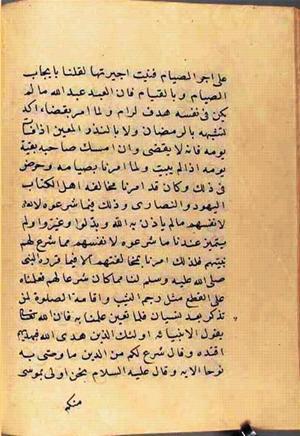 على اجر الصيام فنيت اجيرتها لقلنا بايجاب
الصيام وبالقيام فان العبد عبد الله ما له
يكن في نفسه هدف لرام ولما امر بقضاء اكد
تشبهه بالرمضان ولا بالنذر المعين اذا فات
يومه فانه لا يقضى وان امسك صاحبه بقية
يومه اذا لم يبيت ولما امرنا بصيامه وحرض
في ذلك وكان قد امرنا بمخالفة اهل الكتاب
اليهود والنصارى وذلك فيما شرعوه
لانفسهم مالم ياذن به الله وبدلوا وغيروا ولم
يتميز عندنا ما شرعوه لانفسهم مما شرع لهم
نبيهم فلذلك امرنا بمخالفتهم الا فيما قرره النبي
صلى الله عليه وسلم لنا مما كان شرعا لهم فعلناه
على القطع مثل رجم الثيب واقامة الصلوة لمن
تذكر بعد نسيان فلما تعين علمنا به فان الله تعالى
يقول الانبيا ئه اولئك الذين هدى الله فبهداهم
اقتده وقال شرع لكم من الدين ما وصى به
نوحا الايه وقال عليه السلام نحن اولى بموسى
منكم